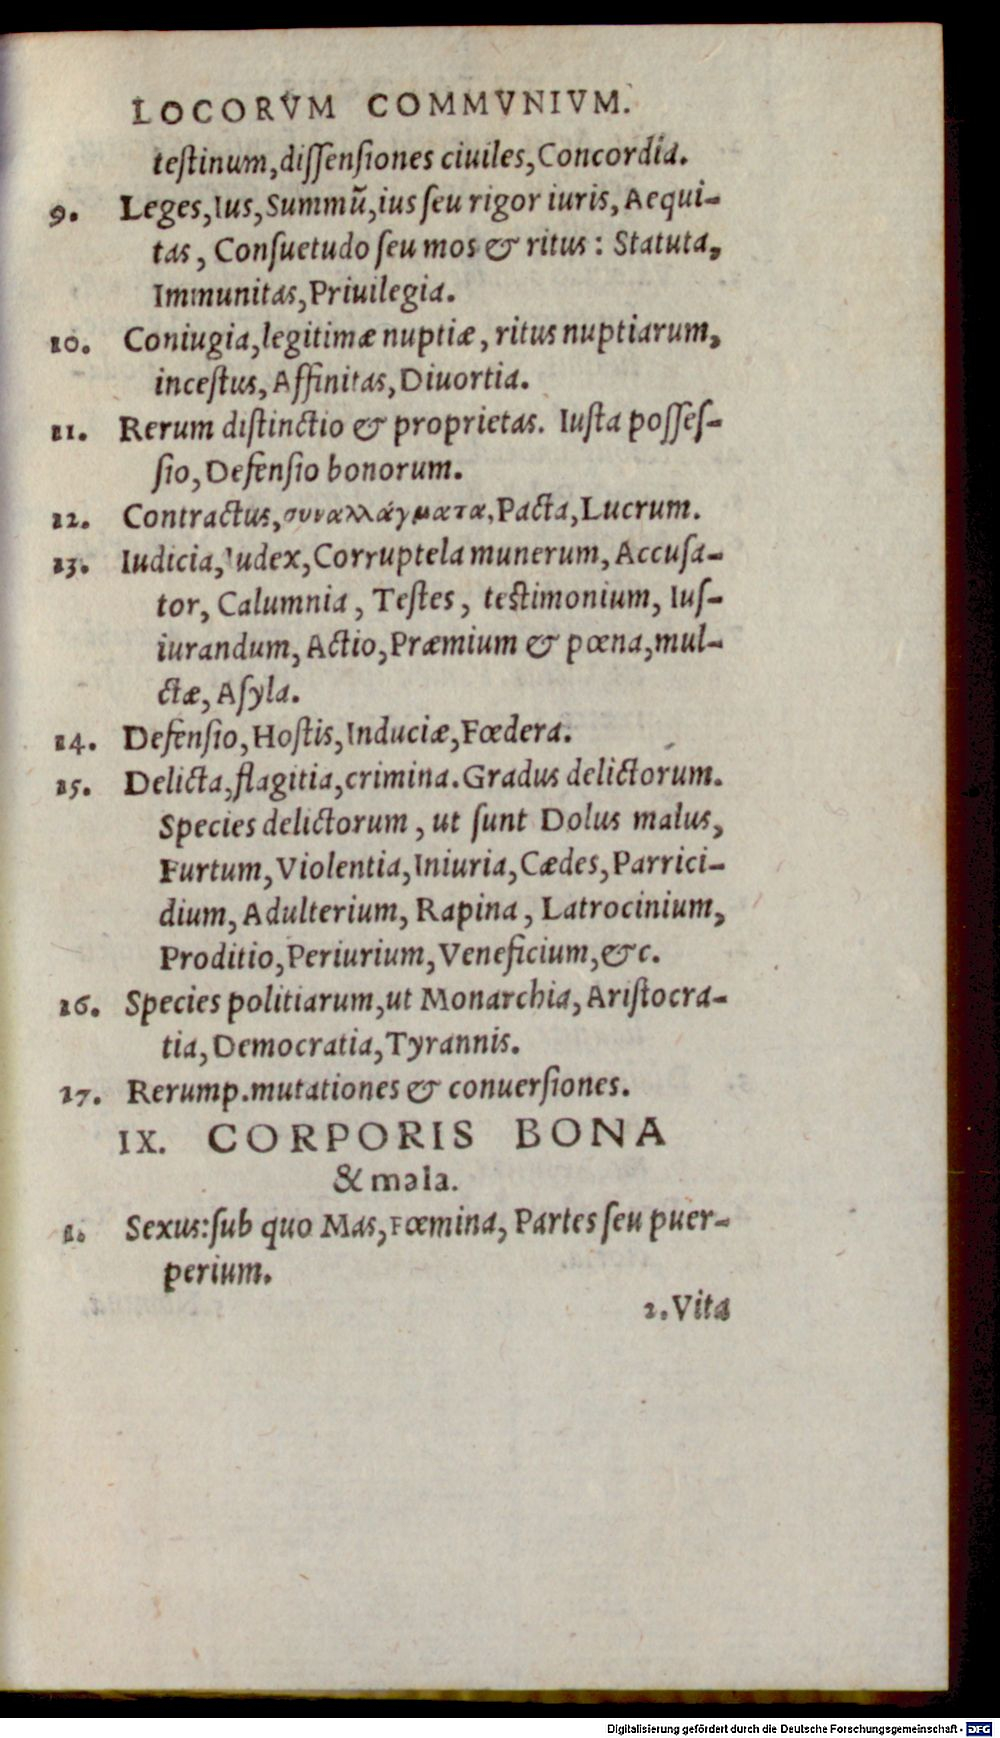 LOCORVM COMMVNIVM.
teſtinum,diſſenſiones ciuiles,Concordia.
9. Leges,Ius,Summũ,ius ſeu rigor iuris, Aequi-
tas, Conſuetudo ſeu mos & ritus: Statuta,
Immunitas,Priuilegia.
10. Coniugia,legitimæ nuptiæ, ritus nuptiarum,
inceſtus, Affinitas, Diuortia.
11. Rerum diſtinctio & proprietas. Iuſta poſſeſ-
ſio, Defenſio bonorum.
12. Contractus, συναλλάγματα, Pacta, Lucrum.
13. Iudicia, Iudex, Corruptela munerum, Accuſa-
tor, Calumnia, Teſtes, teſtimonium, Iuſ-
iurandum, Actio, Præmium & pœna, mul-
ctæ, Aſyla.
14. Defenſio, Hoſtis, Induciæ, Fœdera.
15. Delicta, flagitia, crimina. Gradus delictorum.
Species delictorum, ut ſunt Dolus malus,
Furtum, Violentia, Iniuria, Cædes, Parrici-
dium, Adulterium, Rapina, Latrocinium,
Proditio, Periurium, Veneficium, &c.
16. Species politiarum, ut Monarchia, Ariſtocra-
tia, Democratia, Tyrannis.
17. Rerump. mutationes & conuerſiones.
IX. CORPORIS BONA
& mala.
1. Sexus: ſub quo Mas, Fœmina, Partes ſeu puer-
perium.
2. Vita
Digitalisierung gefördert durch die Deutsche Forschungsgemeinschaft - DFG